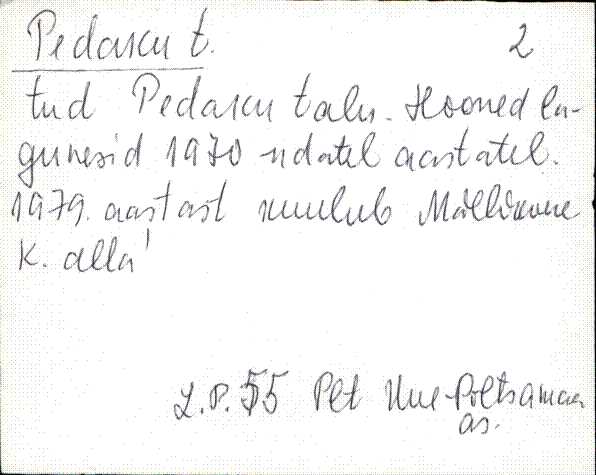 Pedasku t. 2
tud Pedasku talu. Hooned la-
gunesid 1970-ndatel aastatel.
1979. aastast kuulub Mällikvere
k. alla
L.P. 55 Plt Uue-Põltsamaa
as.